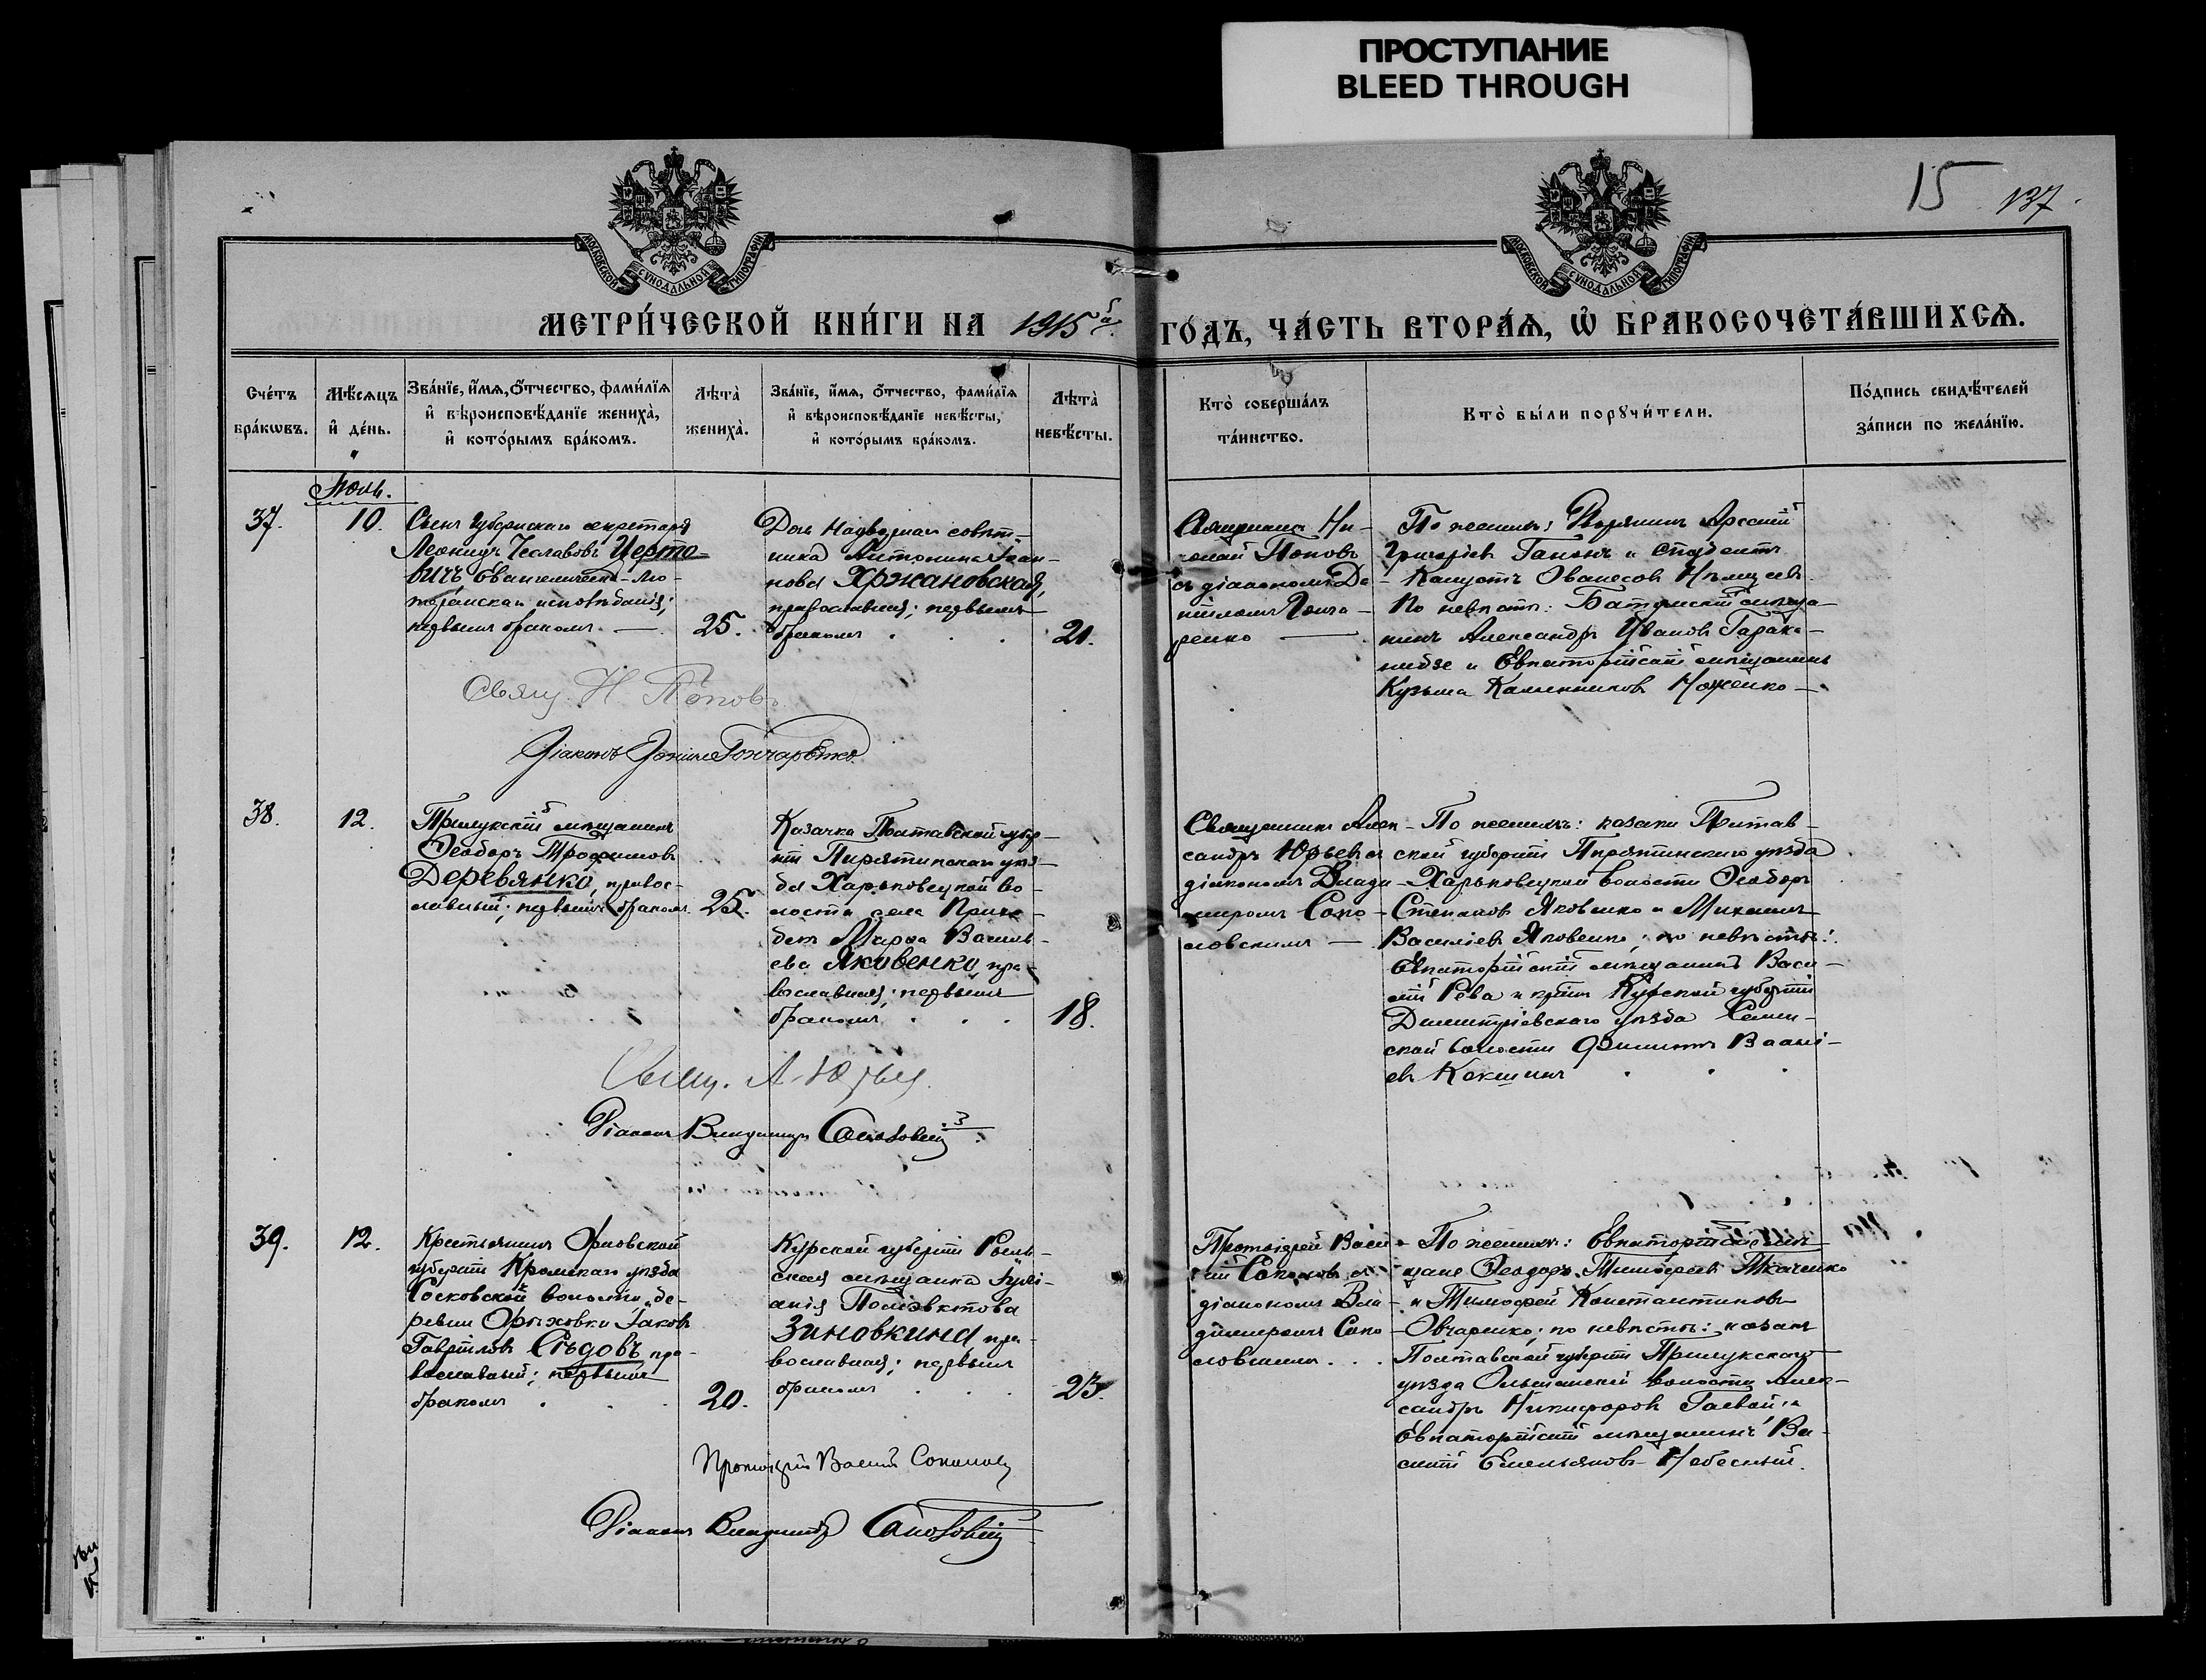 ПРОСТУПАНИЕ
BLEED THROUGH
15 137.
МОСКОВСКОЙ СѴНОДАЛЬНОЙ ТИПОГРАФІИ
МОСКОВСКОЙ СѴНОДАЛЬНОЙ ТИПОГРАФІИ
МЕТРИ́ЧЕСКОЙ КНИ́ГИ НА 1915 ГО́ДЪ, ЧА́СТЬ ВТОРА́Я, Ѡ БРАКОСОЧЕТА́ВШИХСЯ.
Сче́тъ бра́кωвъ.
Мѣ́сяцъ и҆ де́нь.
Зва́нїе, и҆́мя, ѻ҆́тчество, фами́лїя
и҆ вѣроисповѣ́данїе жениха̀,
и҆ кото́рымъ бра́комъ.
Лѣта̀ жениха̀.
Зва́нїе, и҆́мя, ѻ҆́тчество, фами́лїя
и҆ вѣроисповѣ́данїе невѣ́сты,
и҆ кото́рымъ бра́комъ.
Лѣта̀ невѣ́сты.
Кто̀ соверша́лъ
та́инство.
Кто̀ бы́ли порꙋчи́тели.
По́дпись свидѣ́телей
за́писи по жела́нїю.
37.
10.
Сынъ Губернскаго секретаря
Леонидъ Чеславовъ Церто-
вичъ Евангелическо-лю-
теранскаго исповѣданія;
первымъ бракомъ. —
25.
Дочь Надворнаго совѣт-
ника Антонина Іоан-
нова Хржановская,
православная; первымъ
бракомъ . . .
21.
Священникъ Ни-
колай Поповъ
съ діакономъ Да-
ніиломъ Гонча-
ренко —
По женихѣ: Дворянинъ Арсеній
Григорьевъ и студентъ
Ованесовъ
По невѣстѣ: Батумскій мѣща-
нинъ Александръ Ивановъ
и Евпаторійскій мѣщанинъ
Кузьма Ноженко —
Свящ. Н. Поповъ
Діаконъ Даніилъ Гончаренко.
38.
12.
Прилукскій мѣщанинъ
Ѳеодоръ Трофимовъ
Деревянко, правос-
лавный; первымъ бракомъ.
25.
Казачка Полтавской губер-
ніи Пирятинскаго уѣз-
да Харьковецкой во-
лости села
Марѳа Василь-
ева Яковенко, пра-
вославная; первымъ
бракомъ . . .
18.
Священникъ Алек-
сандръ Юрьевъ съ
діакономъ Влади-
миромъ Соко-
ловскимъ —
По женихѣ: казаки Полтав-
ской губерніи Пирятинскаго уѣзда
Харьковецкой волости Ѳеодоръ
Степановъ Яковенко и Михаилъ
Василіевъ Яковенко; по невѣстѣ:
Евпаторійскій мѣщанинъ Васи-
лій Рева и крест. Курской губерніи
Димитріевскаго уѣзда
ской волости Филиппъ Васильі-
евъ Кокшинъ . . .
Свящ. А. Юрьевъ.
Діаконъ Владимиръ Соколовскій
39.
12.
Крестьянинъ Орловской
губерніи Кромскаго уѣзда
Сосковской волости, де-
ревни Орѣховки Іаковъ
Гавріиловъ Сѣдовъ, пра-
вославный; первымъ
бракомъ . . .
20.
Курской губерніи Рыль-
ская мѣщанка Іулі-
анія Поліевктова
Зиновкина, пра-
вославная; первымъ
бракомъ . . .
23.
Протоіерей Васи-
лій Соколовъ съ
діакономъ Вла-
димиромъ Соко-
ловскимъ . . .
По женихѣ: Евпаторійскіе мѣ-
щане Ѳеодоръ Тимоѳеевъ Ткаченко
и Тимоѳей Константиновъ
Овчаренко; по невѣстѣ: казакъ
Полтавской губерніи Прилукскаго
уѣзда Ольшанской волости Алек-
сандръ Никифоровъ Гаевой, и
Евпаторійскій мѣщанинъ Ва-
силій Емельяновъ Небесный.
Протоіерей Василій Соколовъ
Діаконъ Владимиръ Соколовскій